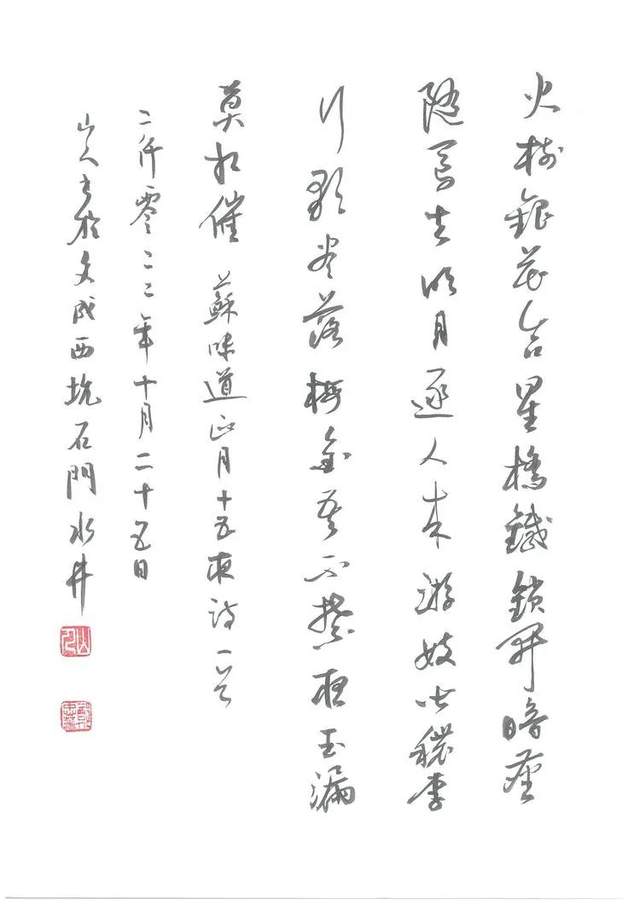 火樹銀花合星橋鐵鎖開暗塵
隨馬去明月逐人來游妓皆穠李
行歌盡落梅金吾不禁夜玉漏
莫相催 蘇味道正月十五夜詩一首
二仟零二二年十月二十五日
山人書於文成西坑石門水井